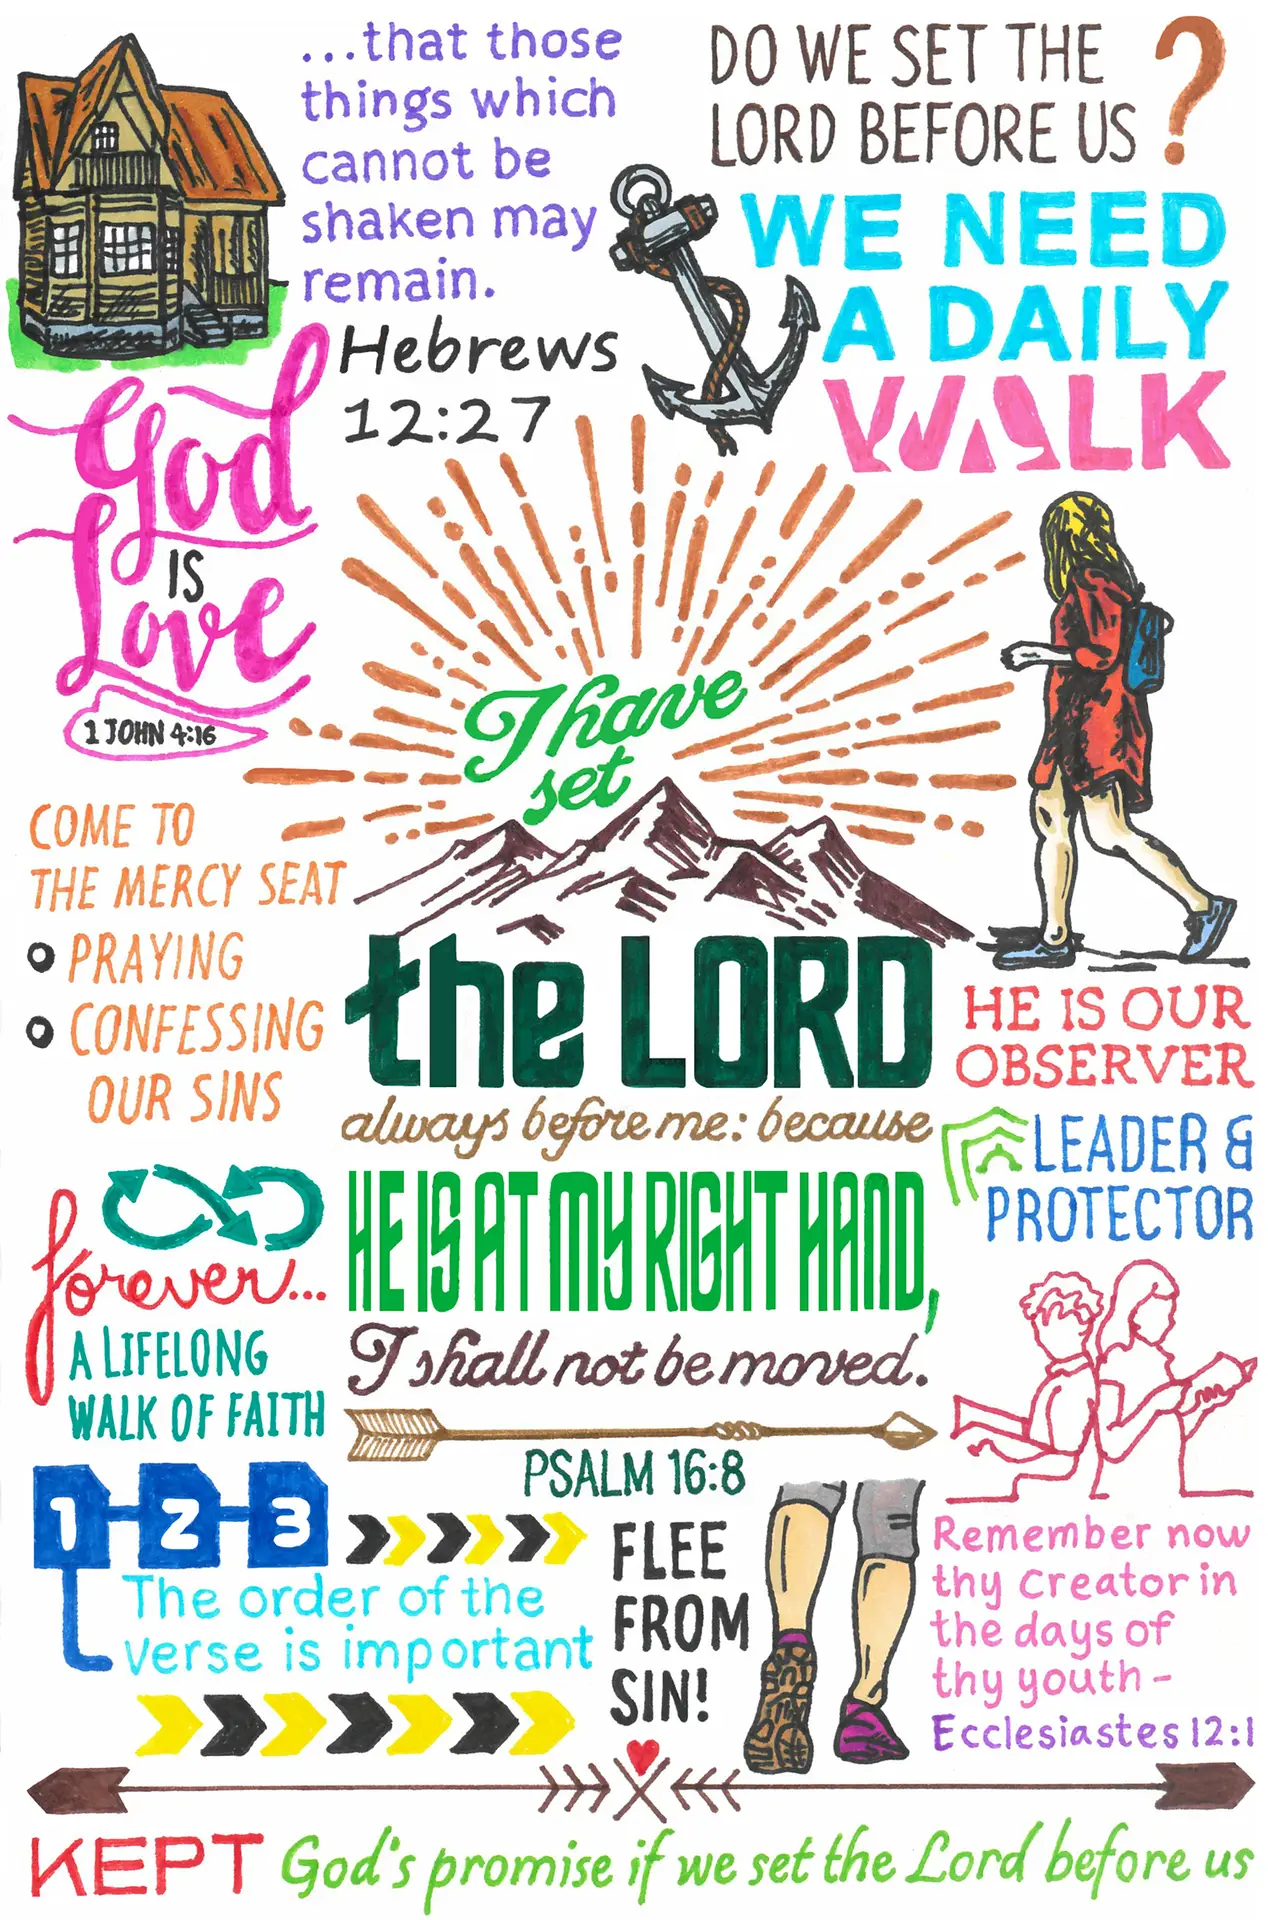 ...that those
things which
cannot be
shaken may
remain.
Hebrews
12:27
DO WE SET THE
LORD BEFORE US ?
WE NEED
A DAILY
WALK
God
IS
Love
1 JOHN 4:16
I have
set
the LORD
always before me: because
HE IS AT MY RIGHT HAND,
I shall not be moved.
PSALM 16:8
COME TO
THE MERCY SEAT
PRAYING
CONFESSING
OUR SINS
HE IS OUR
OBSERVER
LEADER &
PROTECTOR
forever...
A LIFELONG
WALK OF FAITH
1 2 3
The order of the
verse is important
FLEE
FROM
SIN!
Remember now
thy Creator in
the days of
thy youth -
Ecclesiastes 12:1
KEPT God's promise if we set the Lord before us